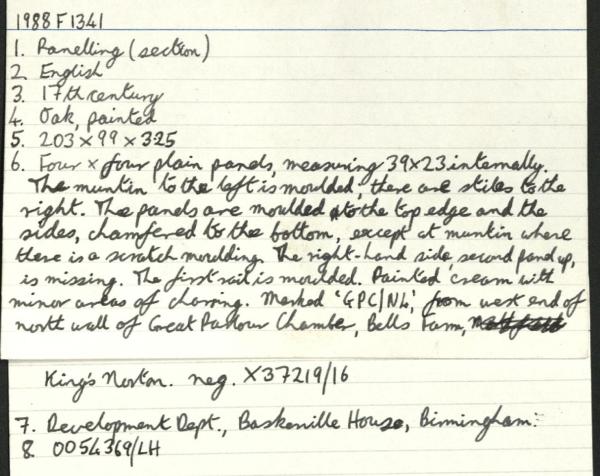 1988 F 1341
1. Panelling (section)
2. English
3. 17th century
4. Oak, painted
5. 203 x 99 x 3.25
6. Four x four plain panels, measuring 39x23 internally.
The muntin to the left is moulded, there are stiles to the
right. The panels are moulded to the top edge and the
sides, chamfered to the bottom, except at muntin where
there is a scratch moulding. The right-hand side, second panel up,
is missing. The first rail is moulded. Painted cream with
minor areas of charring. Marked 'GPC/N4', from west end of
north wall of Great Parlour Chamber, Bells Farm,
King's Norton. neg. X37219/16
7. Development Dept., Baskerville House, Birmingham.
8. 0054369/LH